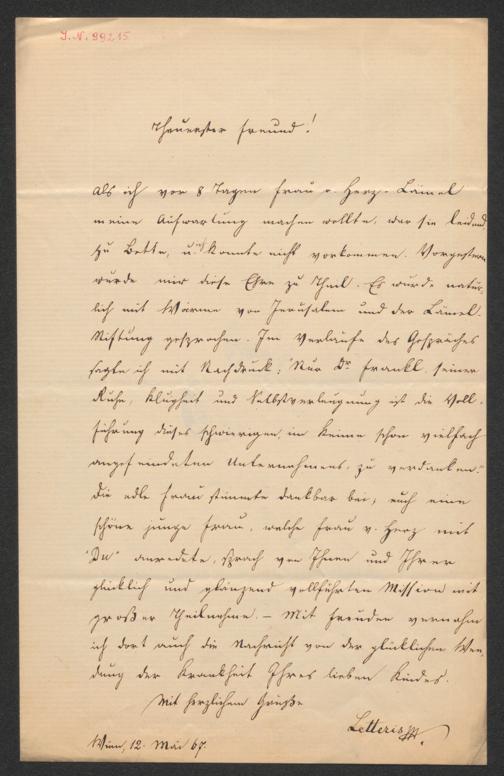 J.N. 99215
Theuerster Freund!
Als ich vor 8 Tagen Frau v. Herz-Lämel
meine Aufwartung machen wollte, war sie leidend
zu Bette, u. ich konnte nicht vorkommen. Vorgestern
wurde mir diese Ehre zu Theil. Es wurde natür-
lich mit Wärme von Jerusalem und der Lämel-
Stiftung gesprochen. Im Verlaufe des Gespräches
sagte ich mit Nachdruck: "Nur Dr. Frankl, seiner
Ruhe, Klugheit und Selbstverleugnung ist die Voll-
führung dieses schwierigen, im Keime schon vielfach
angefeindeten Unternehmens, zu verdanken."
Die edle Frau stimmte dankbar bei; auch eine
schöne junge Frau, welche Frau v. Herz mit
"Du" anredete, sprach von Ihnen und Ihrer
glücklich und glänzend vollführten Mission mit
großer Theilnahme. – Mit Freuden vernahm
ich dort auch die Nachricht von der glücklichen Wen-
dung der Krankheit Ihres lieben Kindes.
Mit herzlichem Gruße
Letteris M.
Wien, 12. Mai 67.